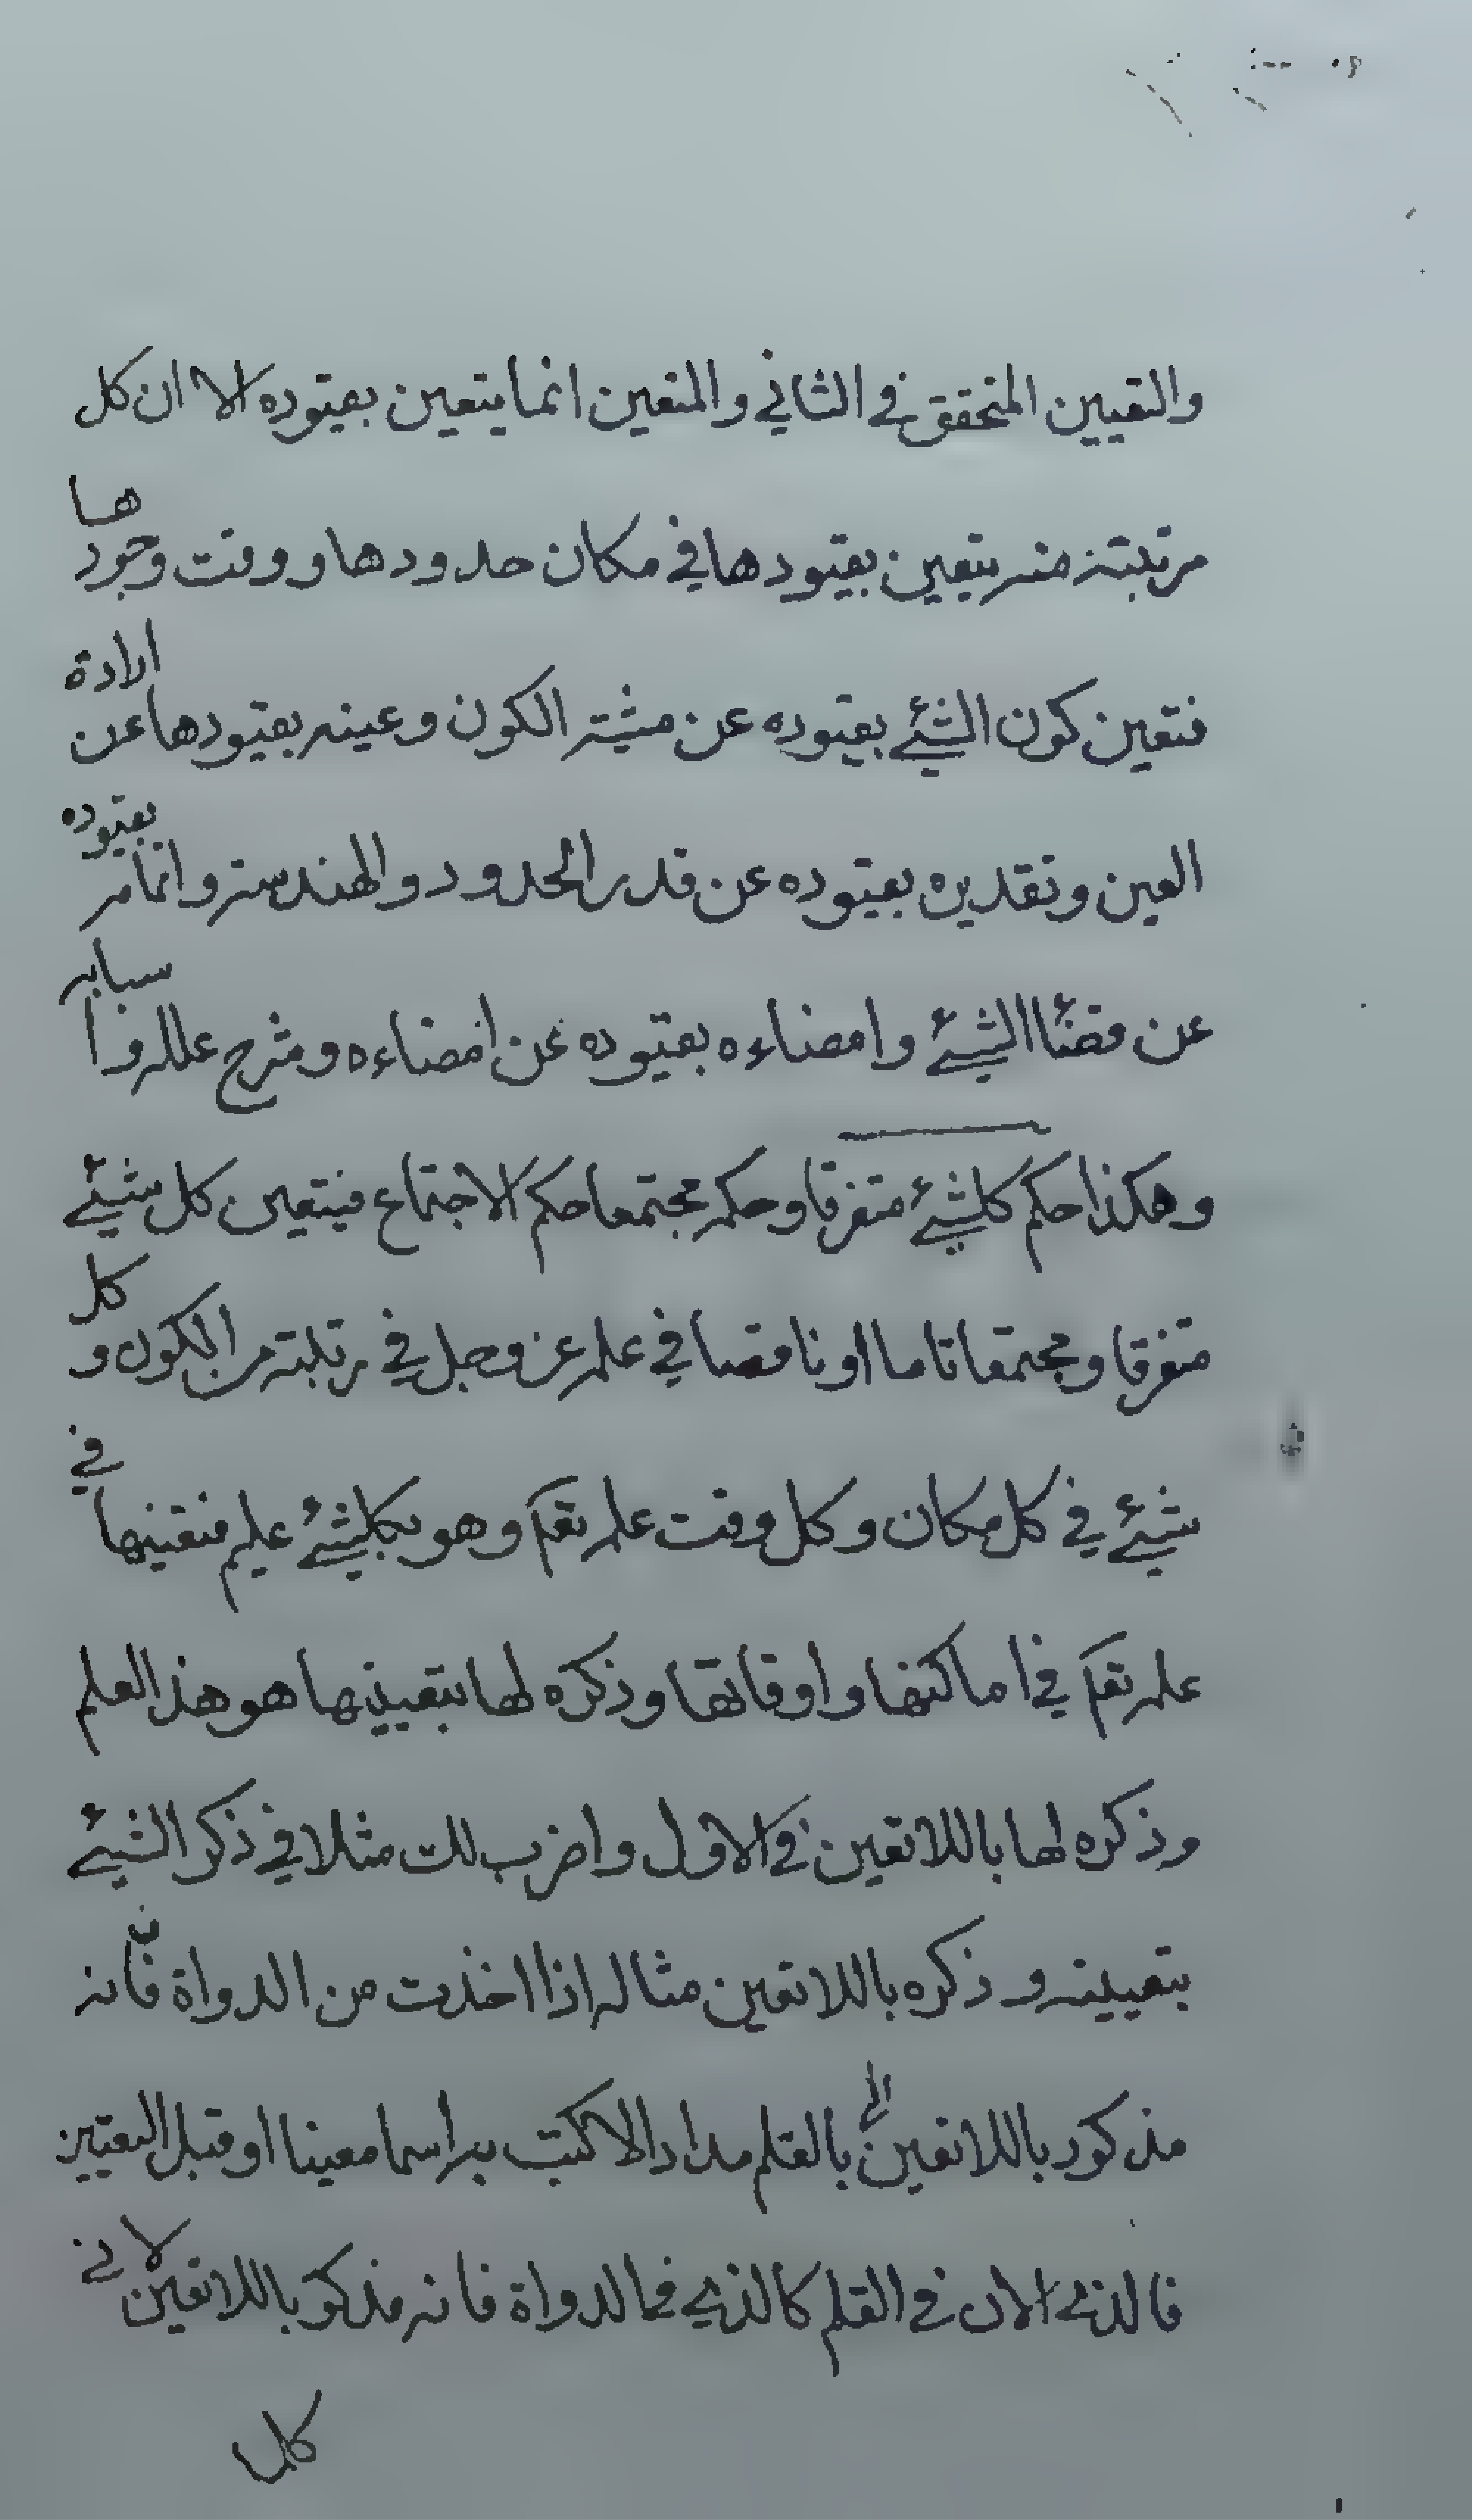 والتعيين المتحقق في الثاني والمتعين انما يتعين بقيوده الا ان كل
مرتبته منه يتعين بقيودها في مكان حدودها ووقت وجودها
فتعين كون الشئ بقيوده عن مشيته الكون وعينه بقيودها عن ارادة
العين وتقديره بقيوده عن قدر الحدود والهندسته واتمامه بقيوده
عن قضئا الشئ وامضاءه بقيوده عن امضاءه ومشرح علله واسبابه
وهكذا حكم كلشئ متفرقا وحكمه مجتمعا حكم الاجتماع فيتعين كل شئ
متفرقا ومجتمعا تاما او ناقصا في علمه عز وجل في رتبته من الكون وكل
شئ في كل مكان وكل وقت علمه تعم وهو بكلشئ عليم فتعينها في
علمه تعم في اماكنها واوقاتها وذكره لها بتعيينها هو هذا العلم
وذكره لها باللاتعين في الاول واضرب لك مثلا في ذكر الشئ
بتعيينه وذكره باللاتعين مثاله اذا اخذت من الدواة فانه
مذكور باللاتعين بالقلم مدادا لا كتبت به اسما معينا او قبل التعيين
فالذي الان في القلم كالذي في الدواة فانه مذكو باللاتعين لا في
كل